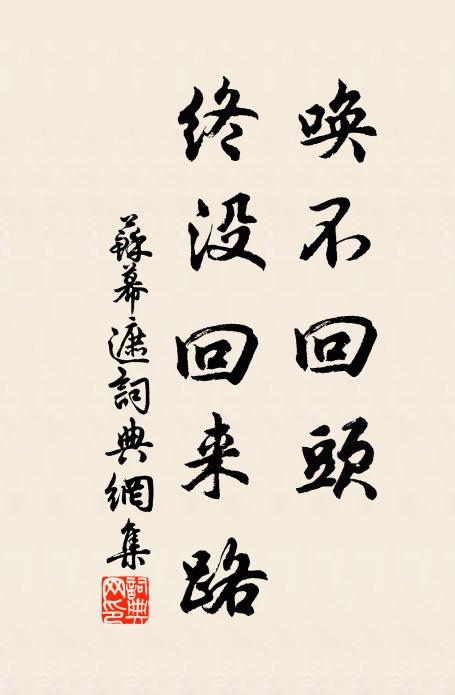 唤不回頭
终没回来路
蘇幕遮詞典網集
詞典网印